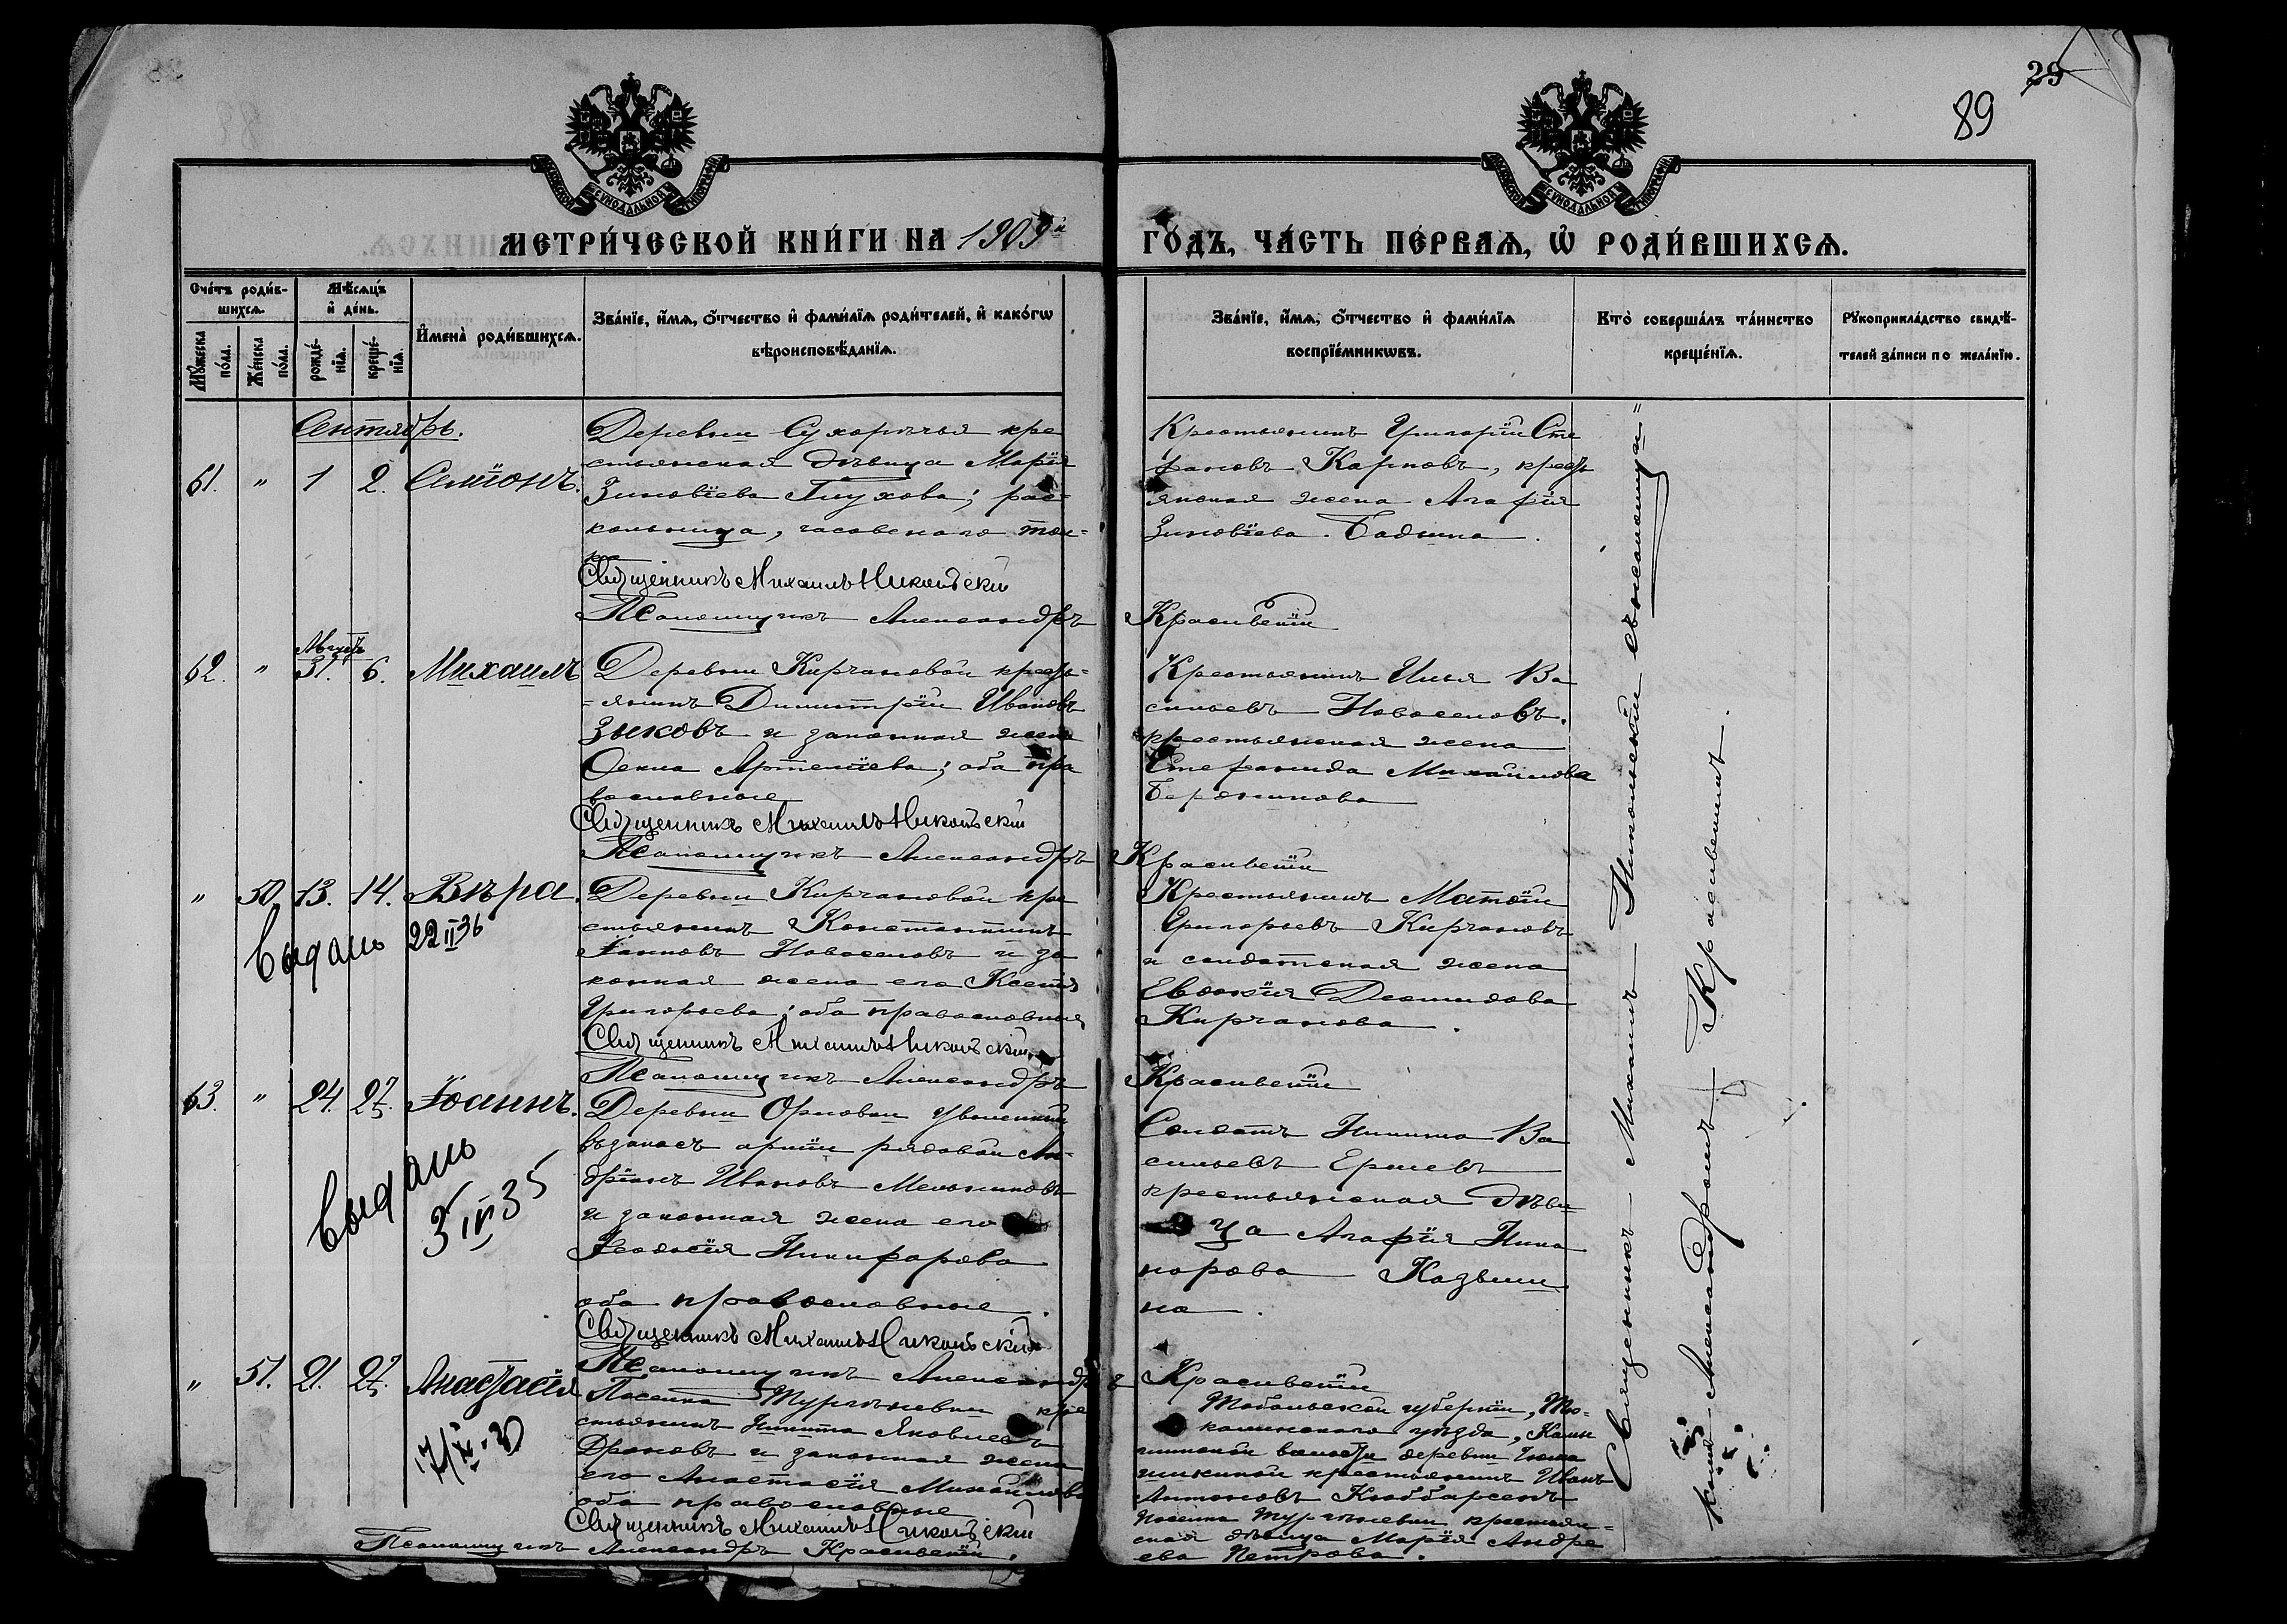 29
89
МЕТРИ́ЧЕСКОЙ КНИ́ГИ НА 1909й
ГО́ДЪ, ЧА́СТЬ ПЕ́РВАѦ, Ѡ҆ РОДИ́ВШИХСѦ.
Сче́тъ роди́в-
шихсѧ.
Мѣ́сѧцъ
и҆ де́нь.
Мꙋ́жеска
по́ла.
Же́нска
по́ла.
рожде́-
нїѧ.
креще́-
нїѧ.
И҆мена̀ роди́вшихсѧ.
Зва́нїе, и҆́мѧ, ѻ҆́тчество и҆ фами́лїѧ роди́телей, и҆ како́гѡ
вѣроисповѣ́данїѧ.
Зва́нїе, и҆́мѧ, ѻ҆́тчество и҆ фами́лїѧ
воспрїе́мникѡвъ.
Кто̀ соверша́лъ та́инство
креще́нїѧ.
Рꙋкоприкла́дство свидѣ́-
телей за́писи по жела́нїю.
Сентябрь.
61. " 1 2. Симіонъ.
Деревни Сухоречья кре
стьянская дѣвица Марія
Зиновіева Глухова; рас-
кольница, часовенаго тол-
ка
Священникъ Михаилъ Никольскій
Псаломщикъ Александръ Красивскій
Крестьянинъ Григорій Сте
фановъ Карповъ, крестъ
янская жена Агафія
Зиновіева Бабина.
62. " Августъ 31. 6. Михаилъ
Деревни Кирчановой крестъ-
=янинъ Димитрій Ивановъ
Зыковъ и законная жена
Ѳекла Артеміева; оба пра
вославные
Священникъ Михаилъ Никольскій
Псаломщикъ Александръ Красивскій
Крестьянинъ Илья Ва
сильевъ Новоселовъ.
крестьянская жена
Стефанида Михайлова
" 50. 13. 14. Вѣра.
Выдано 22 II 36
Деревни Кирчановой кре
стьянинъ Константинъ
Іанновъ Новоселовъ и за
конная жена его Ксенія
Григорьева; оба православные
Священникъ Михаилъ Никольскій
Псаломщикъ Александръ Красивскій
Крестьянинъ Матѳій
Григорьевъ Кирчановъ
и солдатская жена
Евдокія Деомидова
Кирчанова.
63. " 24. 27. Іоаннъ.
Выдано
3 IV 35
Деревни Орловой уволенный
въ запасъ арміи рядовой Ан-
дріанъ Ивановъ Мельниковъ
и законная жена его
Ѳеодосія Никифорова
оба православные.
Священникъ Михаилъ Никольскій
Псаломщикъ Александръ Красивскій
Солдатъ Никита Ва
сильевъ Ершевъ
крестьянская дѣви
ца Агафія Ника
норова Казьми
на.
" 51. 21. 27. Анастасія
Поселка Тургеневки кре
стьянинъ Никита Яковлевъ
Дроновъ и законная жена
его Анастасія Михайлова
оба православные
Священникъ Михаилъ Никольскій
Псаломщикъ Александръ Красивскій.
Тобольской губерніи, Тю-
калинскаго уѣзда,
волости деревни
крестьянинъ Иванъ
Антоновъ
поселка Тургеневки крестьян-
ская дѣвица Марія Андре
ева Петрова.
Священникъ Михаилъ Никольскій съ псаломщи=
комъ Александромъ Красивскимъ.